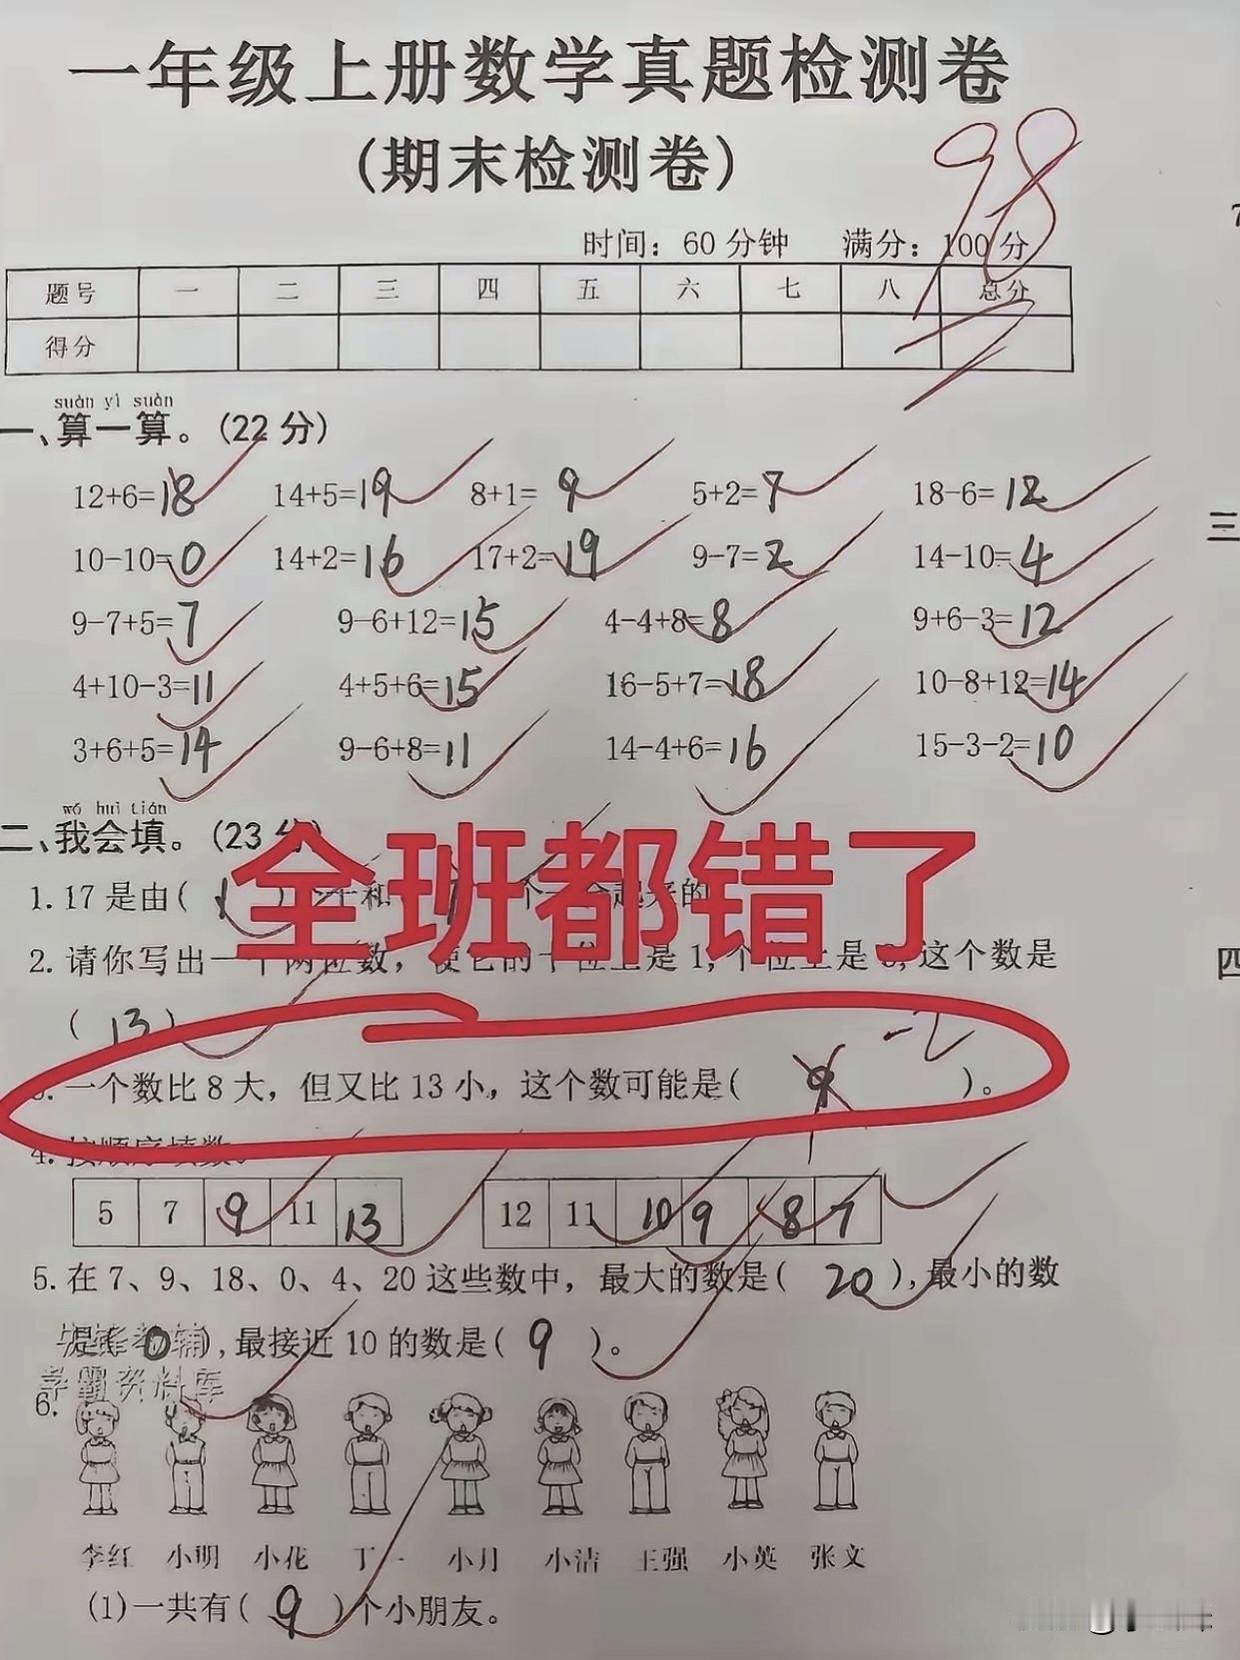 一年级上册数学真题检测卷
(期末检测卷)
98
时间：60分钟 满分：100分
题号 一 二 三 四 五 六 七 八 总分
得分
suàn yì suàn
一、算一算。(22分)
12+6=18 14+5=19 8+1=9 5+2=7 18-6=12
10-10=0 14+2=16 17+2=19 9-7=2 14-10=4
9-7+5=7 9-6+12=15 4-4+8=8 9+6-3=12
4+10-3=11 4+5+6=15 16-5+7=18 10-8+12=14
3+6+5=14 9-6+8=11 14-4+6=16 15-3-2=10
wǒ huì tián
二、我会填。(23分)
全班都错了
1.17是由(1)个十和 个一合起来的
2.请你写出一个两位数，使它的十位上是1,个位上是3,这个数是
(13)
-2
3.一个数比8大，但又比13小，这个数可能是(9)。
4.按顺序填数。
5 7 9 11 13 12 11 10 9 8 7
5.在7、9、18、0、4、20这些数中，最大的数是(20),最小的数
是(0),最接近10的数是(9)。
学霸资料库
6.
李红 小明 小花 丁一 小月 小洁 王强 小英 张文
(1)一共有(9)个小朋友。
三
四
7